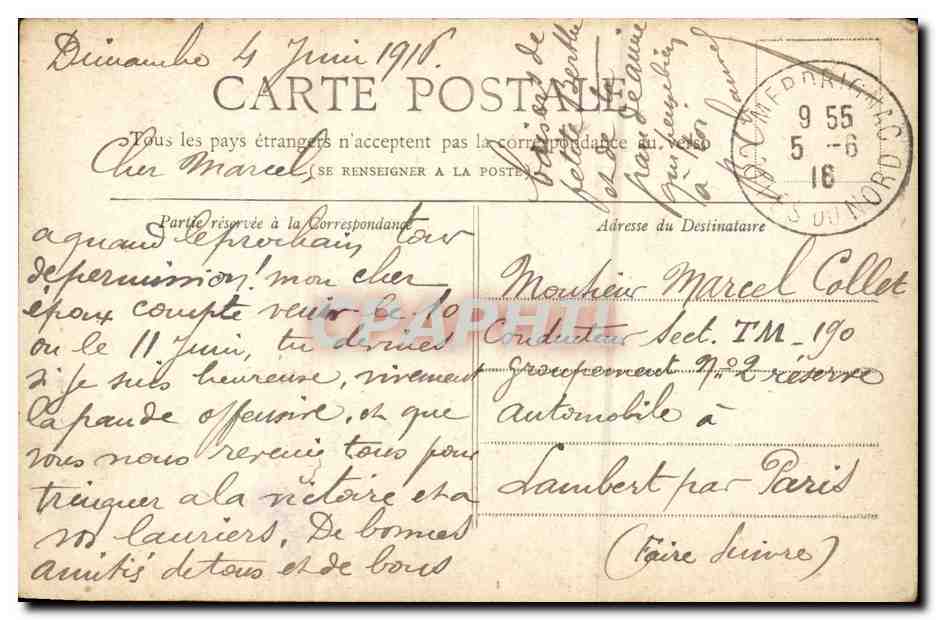 Dimanche 4 Juin 1916.
CARTE POSTALE
Tous les pays étrangers n'acceptent pas la correspondance au verso
(SE RENSEIGNER A LA POSTE)
Cher Marcel,
Partie réservée à la Correspondance
a quand le prochain tour
de permission! mon cher
époux compte venir le 10
ou le 11 Juin, tu devines
si je suis heureuse, vivement
la grande offensive, et que
vous nous reveniez tous pour
trinquer a la victoire et a
vos lauriers. De bonnes
amitiés de tous et de bons
baisers de
petite Berthe
et de la
grande Jeanne
qui pense bien
à toi
Adresse du Destinataire
Monsieur Marcel Collet
Conducteur Sect. TM-190
groupement N° 2 réserve
automobile à
Lambert par Paris
(Faire Suivre)
MERDRIGNAC
9 55
5 -6
16
CS DU NORD
CPAPHIL